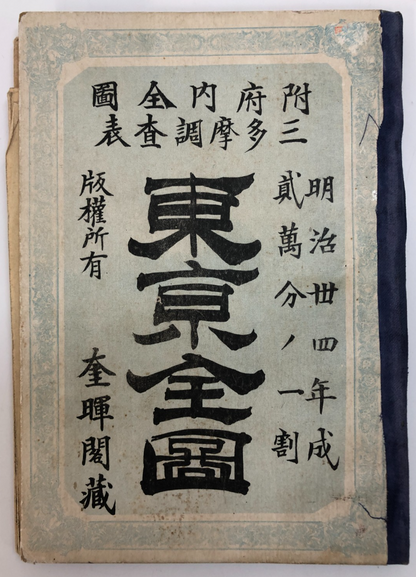 附府内全圖
三多摩調査表
明治丗四年成
貳萬分ノ一割
東京全圖
版權所有
奎暉閣藏